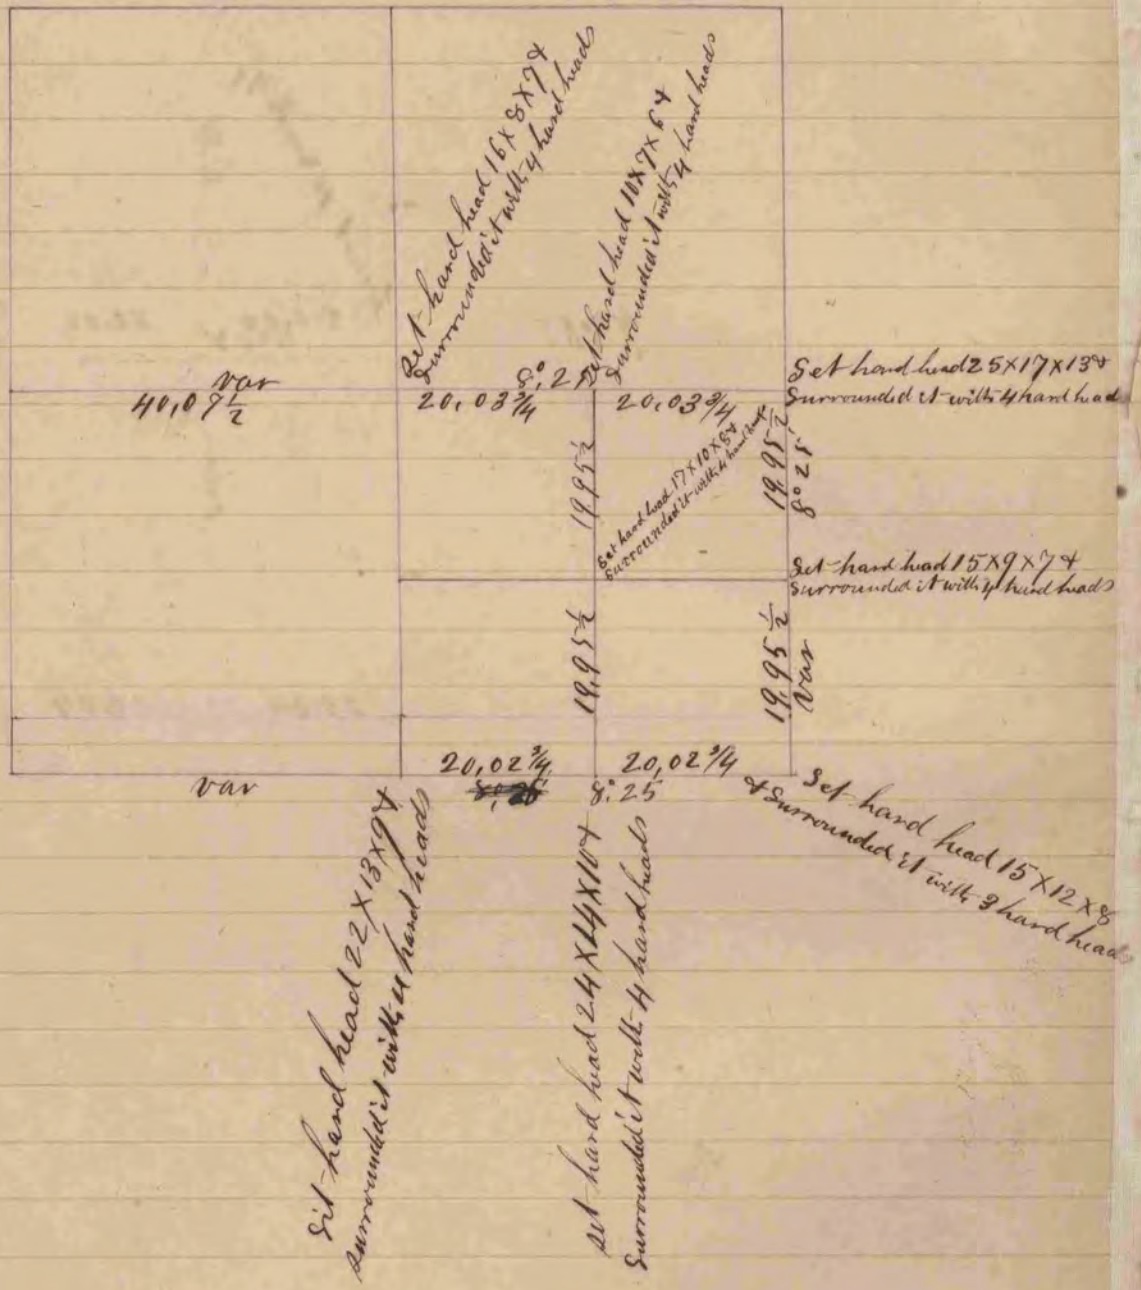 Set hard head 16 X 8 X 7 &
surrounded it with 4 hard heads
Set hard head 10 X 7 X 6 &
surrounded it with 4 hard heads
var
40,07 1/2
8°,25
20,03 3/4
20,03 3/4
Set hard head 25 X 17 X 13 &
surrounded it with 4 hard head
19,95 1/2
Set hard head 17 X 10 X 8 &
surrounded it with 4 hard heads
19,95 1/2
8° 25
Set hard head 15 X 9 X 7 &
surrounded it with 4 hard heads
19,95 1/2
19,95 1/2
var
var
20,02 3/4
20,02 3/4
8°,25
Set hard head 15 X 12 X 8
& surrounded it with 3 hard heads
Set hard head 22 X 13 X 9 &
surrounded it with 4 hard heads
set hard head 24 X 14 X 10 &
surrounded it with 4 hard heads